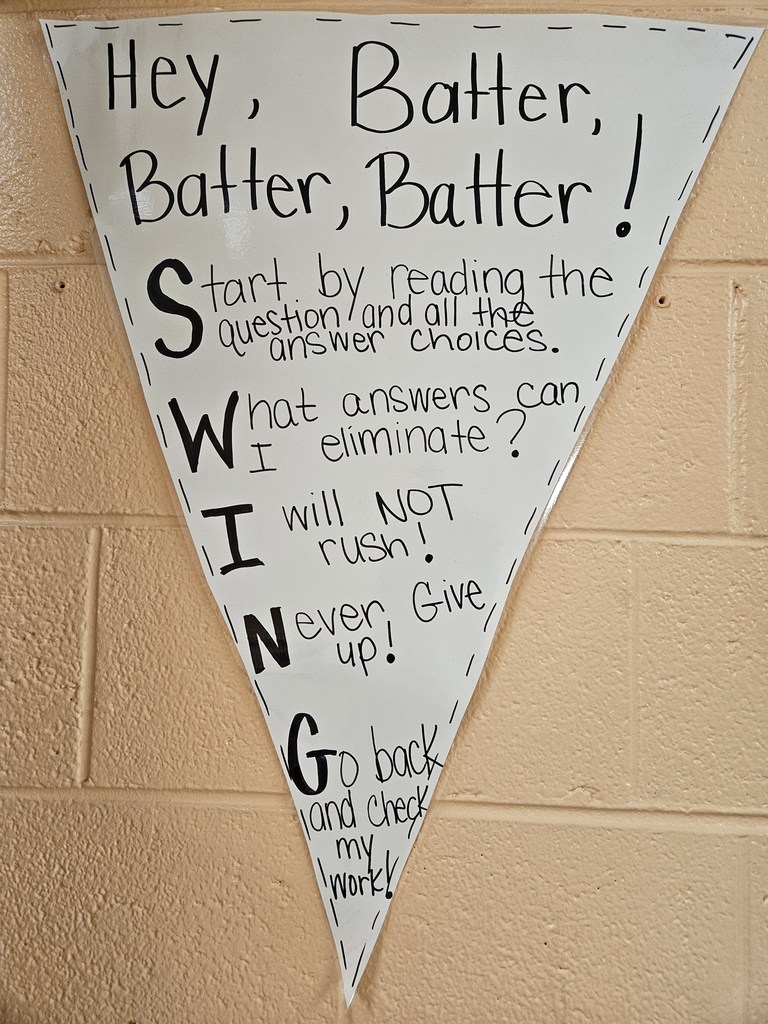 Hey, Batter,
Batter, Batter!
Start by reading the
question and all the
answer choices.
What answers can
I eliminate?
I will NOT
rush!
Never Give
up!
Go back
and check
my
work!